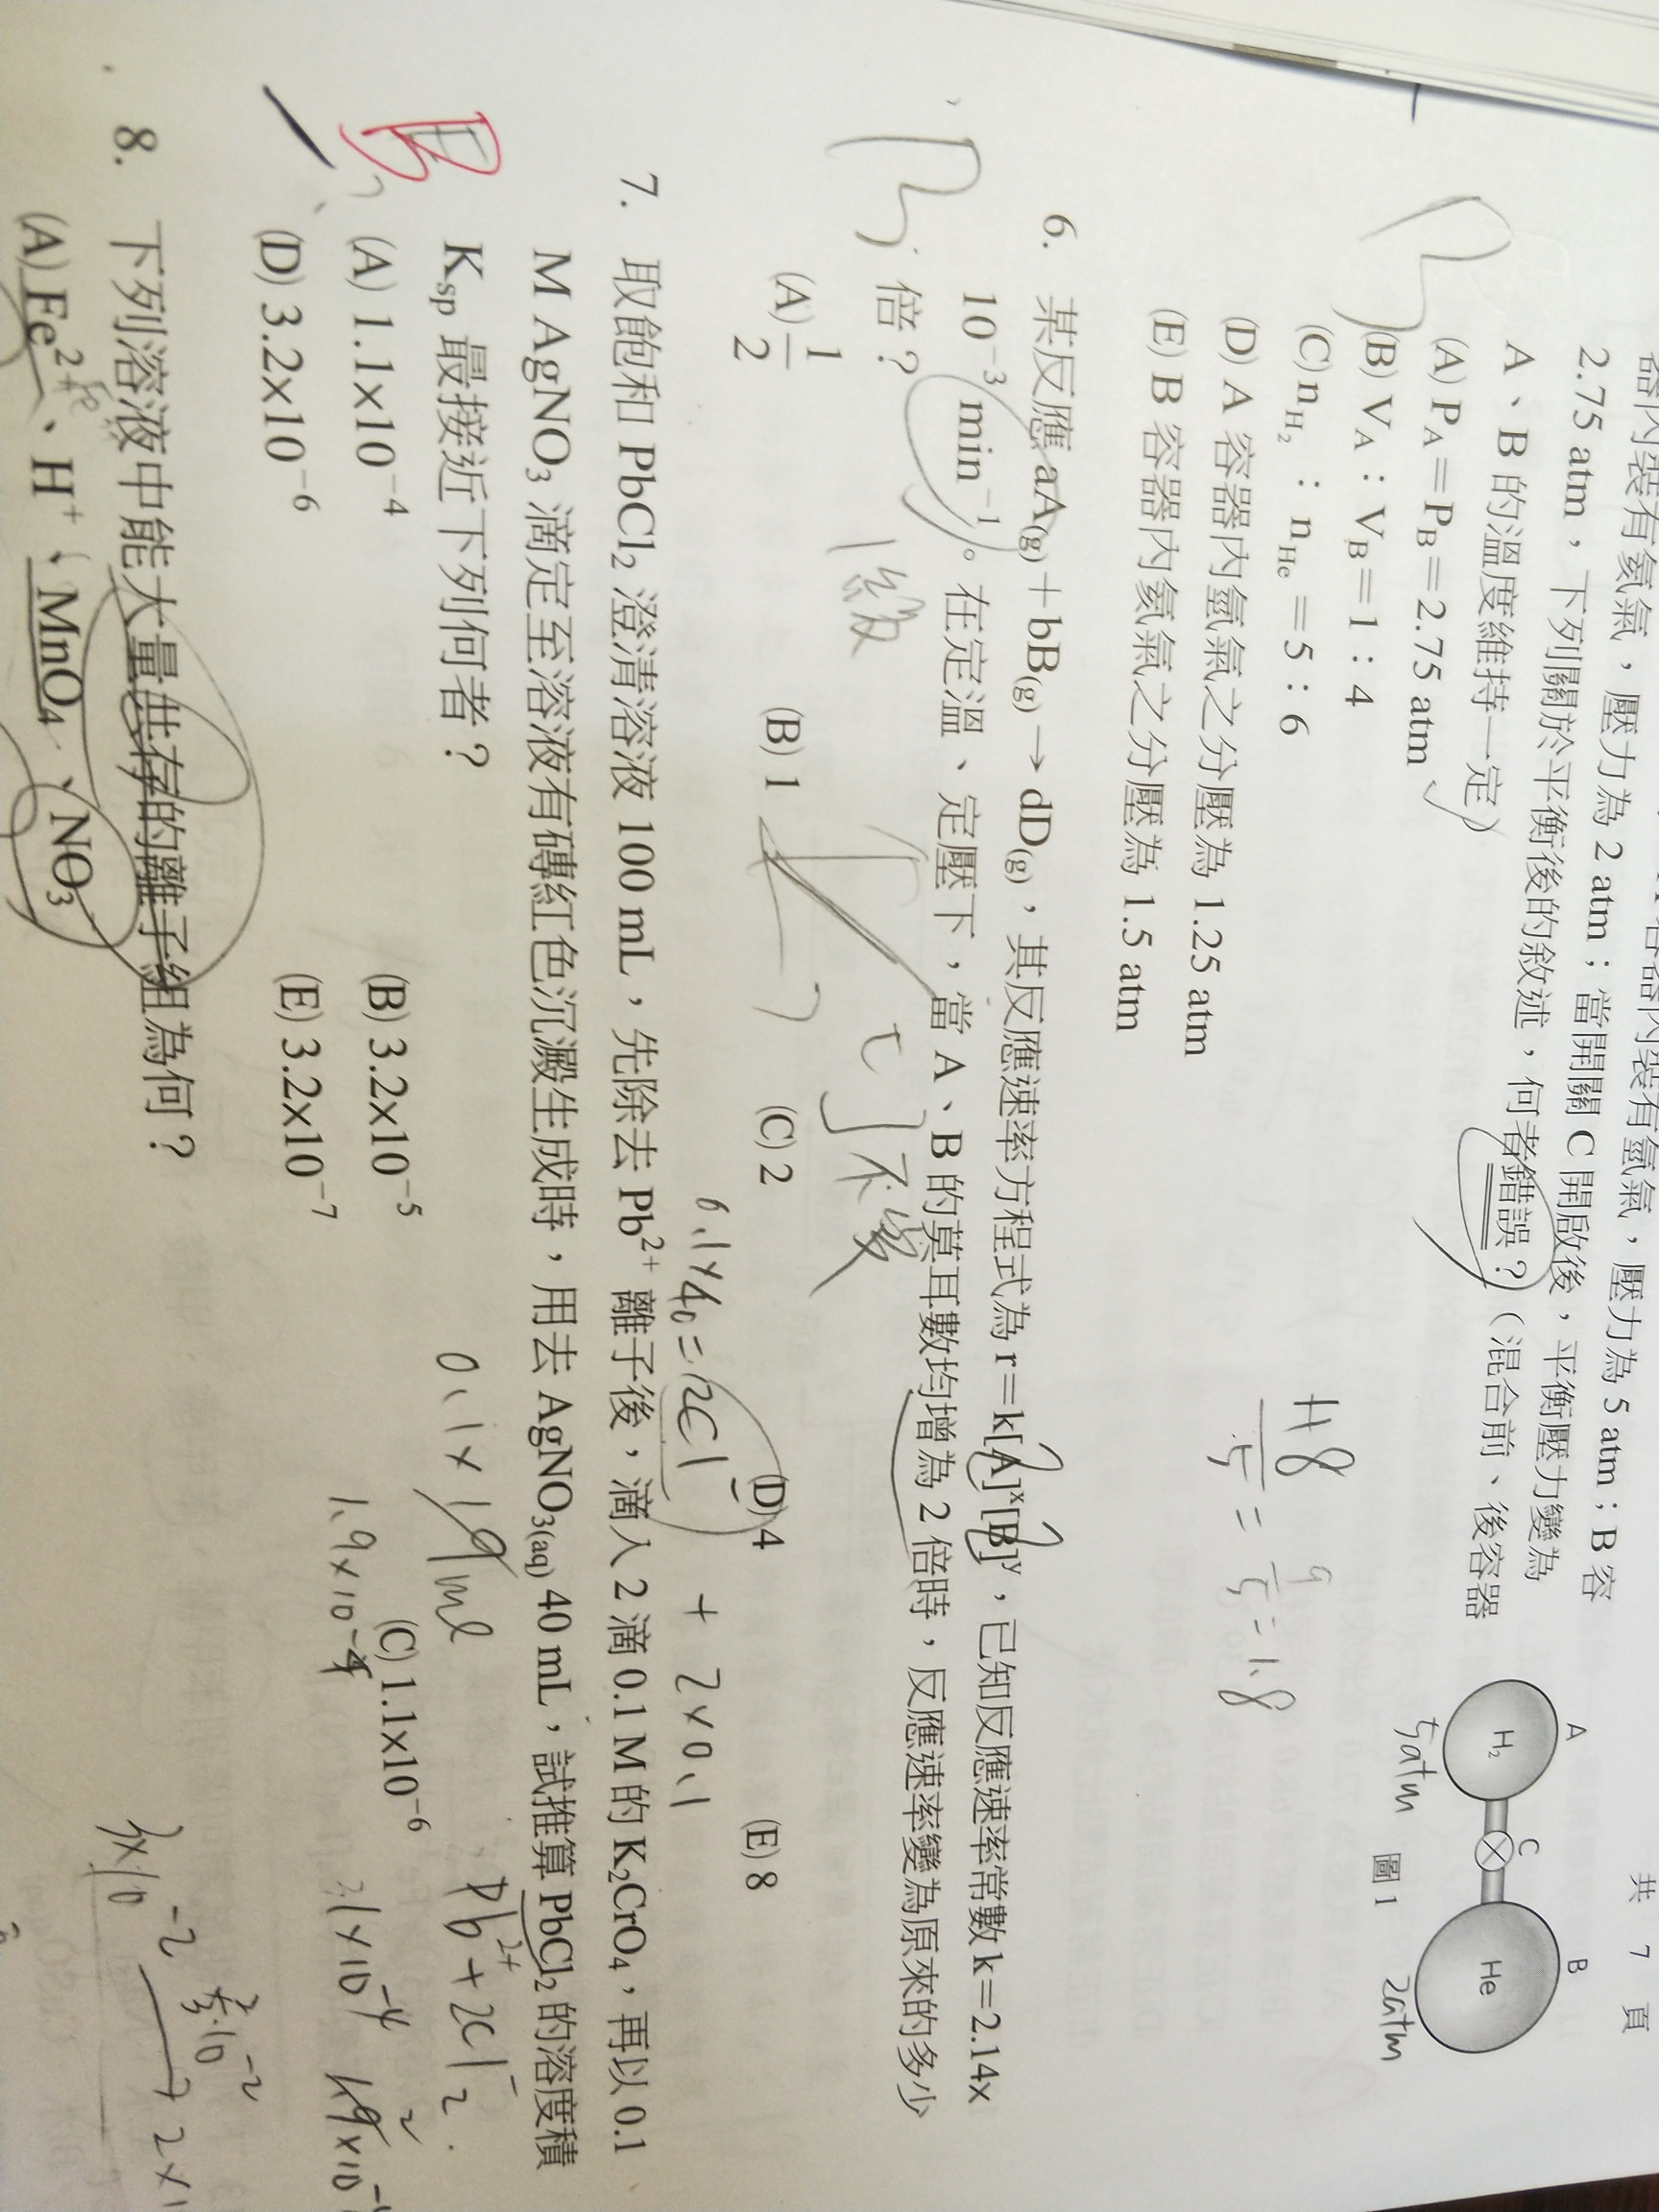 共 7 頁
器內裝有氦氣，壓力為 2 atm；當開關 C 開啟後，平衡壓力變為
2.75 atm，下列關於平衡後的敘述，何者錯誤？（混合前、後容器
A、B 的溫度維持一定）
(A) PA＝PB＝2.75 atm
(B) VA：VB＝1：4
(C) nH2：nHe＝5：6
(D) A 容器內氫氣之分壓為 1.25 atm
(E) B 容器內氦氣之分壓為 1.5 atm
A
B
C
H2
He
5atm
2atm
圖 1
6. 某反應 aA(g)＋bB(g)→dD(g)，其反應速率方程式為 r＝k[A]ˣ[B]ʸ，已知反應速率常數 k＝2.14×
10⁻³ min⁻¹。在定溫、定壓下，當 A、B 的莫耳數均增為 2 倍時，反應速率變為原來的多少
倍？
1級
不變
(A) 1/2
(B) 1
(C) 2
(D) 4
(E) 8
7. 取飽和 PbCl2 澄清溶液 100 mL，先除去 Pb²⁺ 離子後，滴入 2 滴 0.1 M 的 K2CrO4，再以 0.1
M AgNO3 滴定至溶液有磚紅色沉澱生成時，用去 AgNO3(aq) 40 mL，試推算 PbCl2 的溶度積
Ksp 最接近下列何者？
(A) 1.1×10⁻⁴
(B) 3.2×10⁻⁵
(C) 1.1×10⁻⁶
(D) 3.2×10⁻⁶
(E) 3.2×10⁻⁷
8. 下列溶液中能大量共存的離子組為何？
(A) Fe²⁺、H⁺、MnO4⁻、NO3⁻